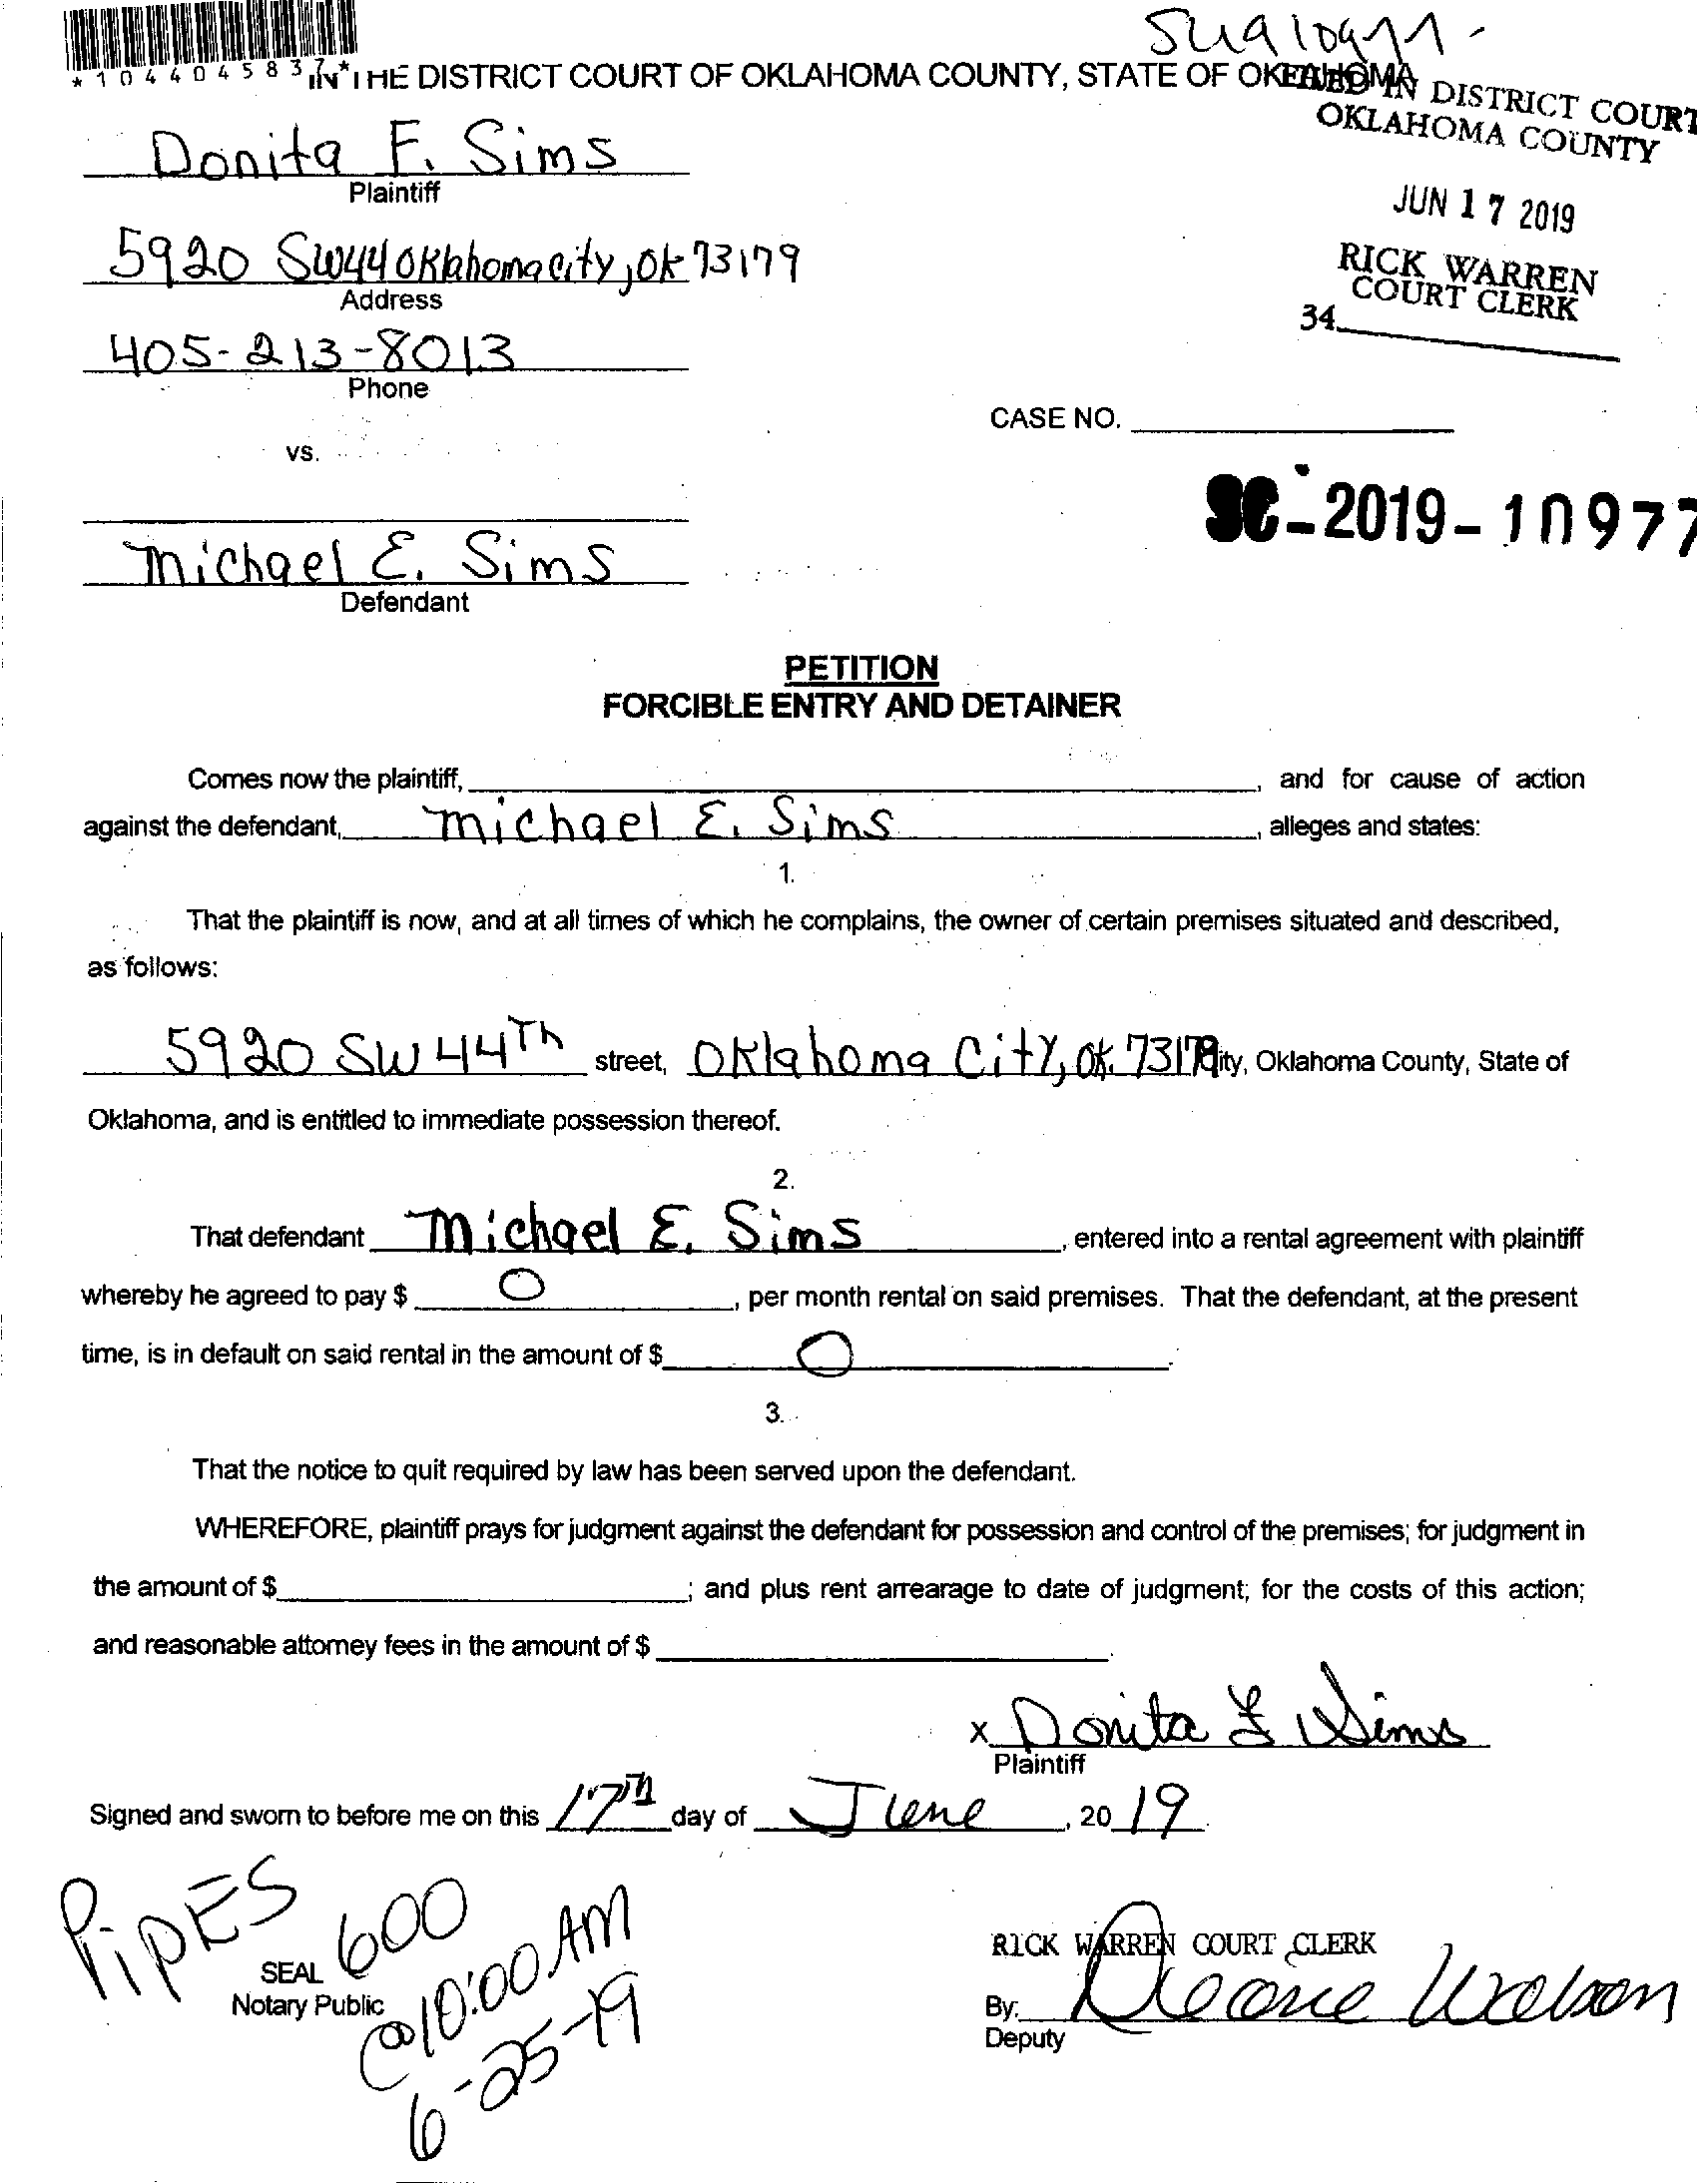 *1044045837*
IN THE DISTRICT COURT OF OKLAHOMA COUNTY, STATE OF OKLAHOMA
FILED IN DISTRICT COURT
OKLAHOMA COUNTY
JUN 17 2019
RICK WARREN
COURT CLERK
34
Donita F. Sims
Plaintiff
5920 SW44 Oklahoma City, Ok 73179
Address
405-213-8013
Phone
CASE NO.
vs.
SC-2019-10977
Michael E. Sims
Defendant
PETITION
FORCIBLE ENTRY AND DETAINER
Comes now the plaintiff, , and for cause of action
against the defendant, Michael E. Sims, alleges and states:
1.
That the plaintiff is now, and at all times of which he complains, the owner of certain premises situated and described,
as follows:
5920 SW 44Th street, Oklahoma City, OK. 73179 City, Oklahoma County, State of
Oklahoma, and is entitled to immediate possession thereof.
2.
That defendant Michael E. Sims, entered into a rental agreement with plaintiff
whereby he agreed to pay $ 0, per month rental on said premises. That the defendant, at the present
time, is in default on said rental in the amount of $ 0.
3.
That the notice to quit required by law has been served upon the defendant.
WHEREFORE, plaintiff prays for judgment against the defendant for possession and control of the premises; for judgment in
the amount of $ ; and plus rent arrearage to date of judgment; for the costs of this action;
and reasonable attorney fees in the amount of $ .
x Donita F Sims
Plaintiff
Signed and sworn to before me on this 17th day of June, 2019.
PipES
600
@10:00 AM
6-25-19
SEAL
Notary Public
RICK WARREN COURT CLERK
By:
Deputy